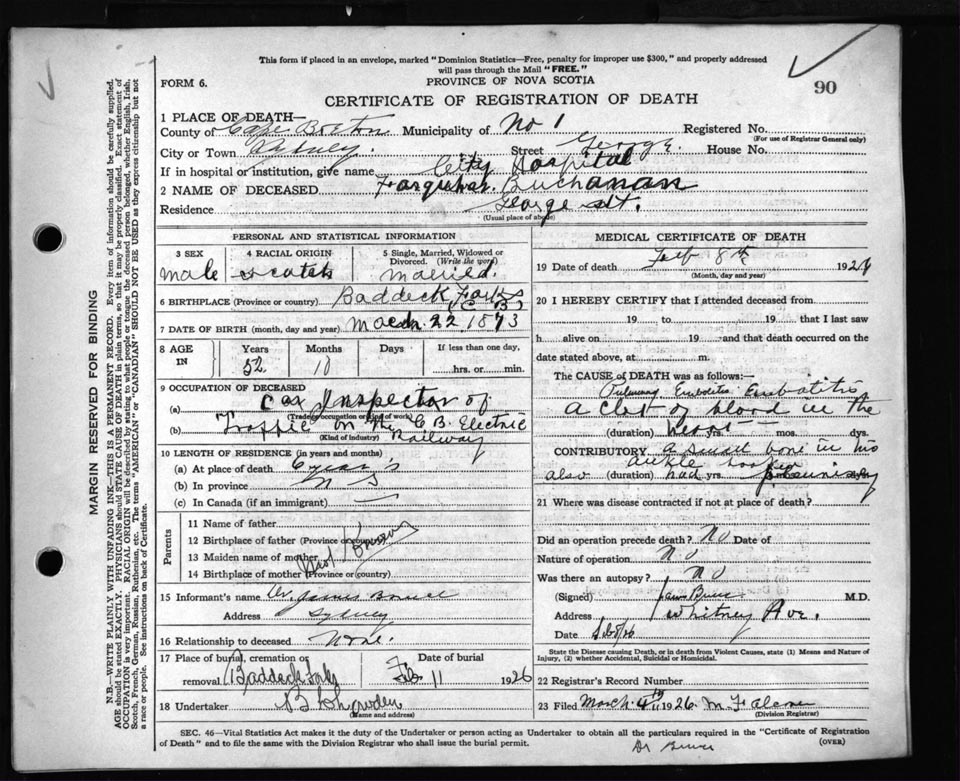 This form if placed in an envelope, marked "Dominion Statistics—Free, penalty for improper use $300," and properly addressed
will pass through the Mail "FREE."
FORM 6.
PROVINCE OF NOVA SCOTIA
90
CERTIFICATE OF REGISTRATION OF DEATH
1 PLACE OF DEATH—
County of Cape Breton Municipality of No 1 Registered No.
(For use of Registrar General only)
City or Town Sydney. Street George House No.
If in hospital or institution, give name City Hospital
2 NAME OF DECEASED Farquhar Buchanan
Residence George St.
(Usual place of abode)
PERSONAL AND STATISTICAL INFORMATION
3 SEX 4 RACIAL ORIGIN 5 Single, Married, Widowed or Divorced. (Write the word)
male scotch married.
6 BIRTHPLACE (Province or country) Baddeck Forks
C B
7 DATE OF BIRTH (month, day and year) March 22 1873
8 AGE IN Years Months Days If less than one day,
52 10 hrs. or min.
9 OCCUPATION OF DECEASED
(a) Car Inspector of
(Trade, occupation or kind of work)
(b) Traffic on the C B. Electric
(Kind of industry) Railway
10 LENGTH OF RESIDENCE (in years and months)
(a) At place of death 6 years
(b) In province N S
(c) In Canada (if an immigrant) —
Parents
11 Name of father
12 Birthplace of father (Province or country)
13 Maiden name of mother
14 Birthplace of mother (Province or country)
Not Known
15 Informant's name Dr James Bruce
Address Sydney
16 Relationship to deceased None.
17 Place of burial, cremation or removal Date of burial
Baddeck Forks Feb 11 1926
18 Undertaker
(Name and address)
MEDICAL CERTIFICATE OF DEATH
19 Date of death Feb 8th 1926
(Month, day and year)
20 I HEREBY CERTIFY that I attended deceased from
19 to 19 that I last saw
h alive on 19 and that death occurred on the
date stated above, at m.
The CAUSE OF DEATH was as follows:—
Pulmonary
A clot of blood in the
(duration) heart yrs. mos. dys.
CONTRIBUTORY a small bone in his
ankle
also (duration) had yrs.
21 Where was disease contracted if not at place of death?
Did an operation precede death? No Date of
Nature of operation No
Was there an autopsy? No
(Signed) James Bruce M.D.
Address Whitney Ave.
Date
State the Disease causing Death, or in death from Violent Causes, state (1) Means and Nature of Injury, (2) whether Accidental, Suicidal or Homicidal.
22 Registrar's Record Number
23 Filed March 1926
(Division Registrar)
SEC. 46—Vital Statistics Act makes it the duty of the Undertaker or person acting as Undertaker to obtain all the particulars required in the "Certificate of Registration
of Death" and to file the same with the Division Registrar who shall issue the burial permit.
(OVER)
Dr Bruce
MARGIN RESERVED FOR BINDING
N.B.—WRITE PLAINLY WITH UNFADING INK—THIS IS A PERMANENT RECORD. Every item of information should be carefully supplied.
AGE should be stated EXACTLY. PHYSICIANS should STATE CAUSE OF DEATH in plain terms, so that it may be properly classified. Exact statement of
OCCUPATION is very important. RACIAL ORIGIN will be described by stating to what people or tongue the deceased person belonged, whether English, Irish,
Scotch, French, German, Russian, Ruthenian, etc. The terms "AMERICAN" or "CANADIAN" SHOULD NOT BE USED as they express citizenship but not
a race or people. See instructions on back of Certificate.